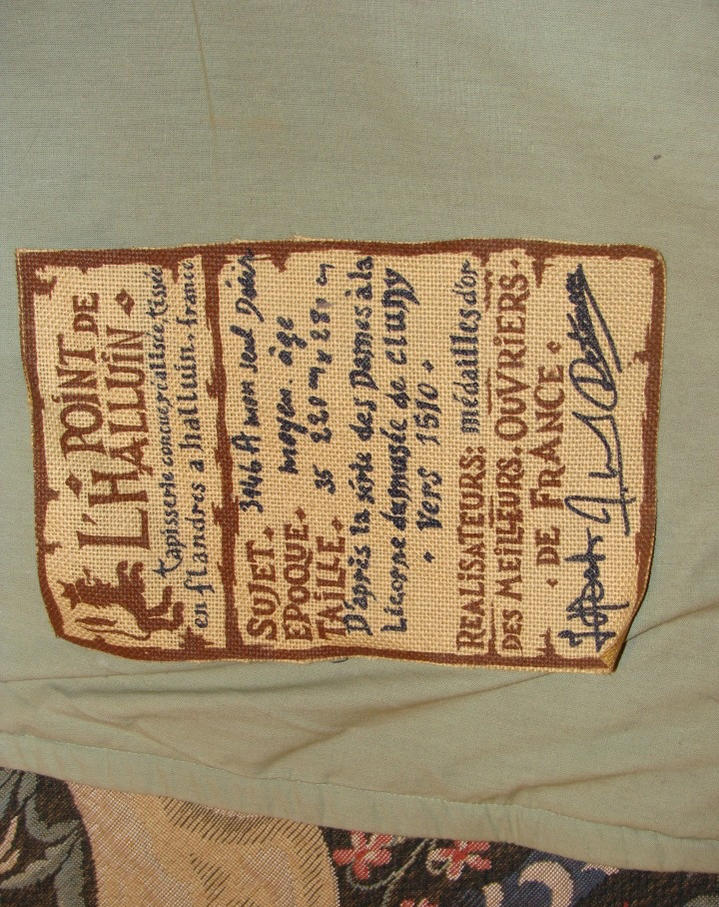 POINT DE
L'HALLUIN
tapisserie conçue, réalisée, tissée
en flandres a halluin. france
SUJET. 3146 A mon seul Désir
EPOQUE. moyen. âge
TAILLE. 35 220 m x 280 m
D'après la série des Dames à la
Licorne du musée de Cluny
• Vers 1510 •
REALISATEURS: médailles d'or
DES MEILLEURS. OUVRIERS.
• DE FRANCE •